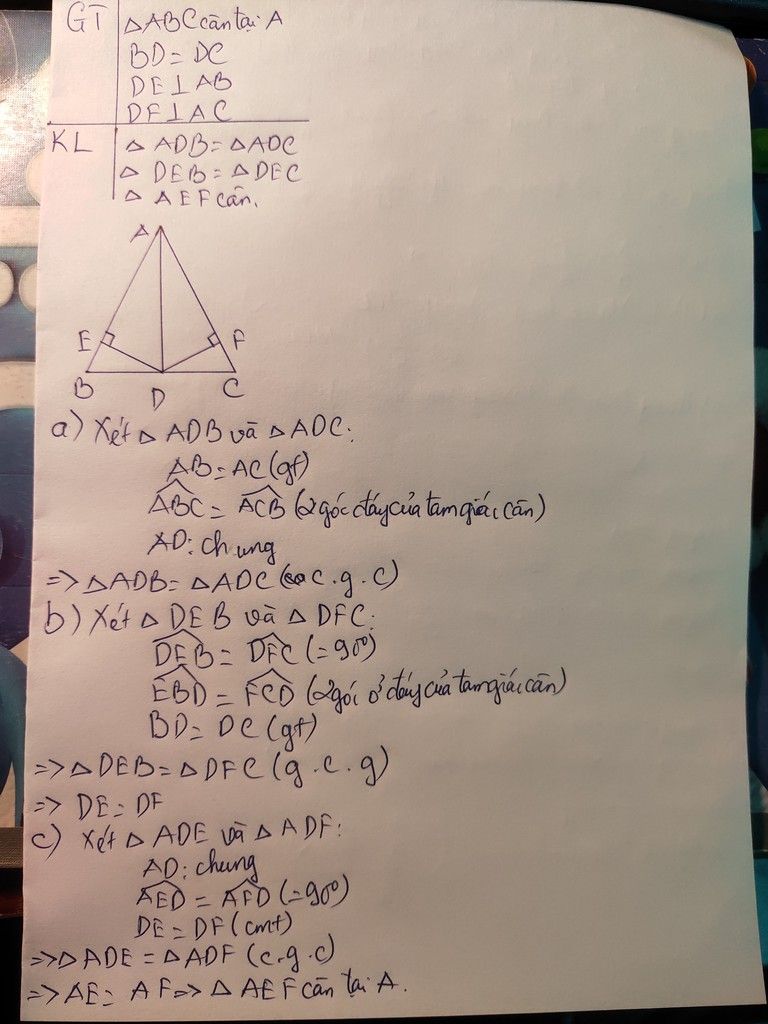 GT ΔABC cân tại A
BD = DC
DE ⊥ AB
DF ⊥ AC
KL Δ ADB = Δ ADC
Δ DEB = Δ DEC
Δ AEF cân.
A
E F
B D C
a) Xét Δ ADB và Δ ADC:
AB = AC (gt)
\widehat{ABC} = \widehat{ACB} (2 góc đáy của tam giác cân)
AD: chung
=> Δ ADB = Δ ADC (c.g.c)
b) Xét Δ DEB và Δ DFC:
\widehat{DEB} = \widehat{DFC} (= 90°)
\widehat{EBD} = \widehat{FCD} (2 góc ở đáy của tam giác cân)
BD = DC (gt)
=> Δ DEB = Δ DFC (g.c.g)
=> DE = DF
c) Xét Δ ADE và Δ ADF:
AD: chung
\widehat{AED} = \widehat{AFD} (= 90°)
DE = DF (cmt)
=> Δ ADE = Δ ADF (c.g.c)
=> AE = AF => Δ AEF cân tại A.